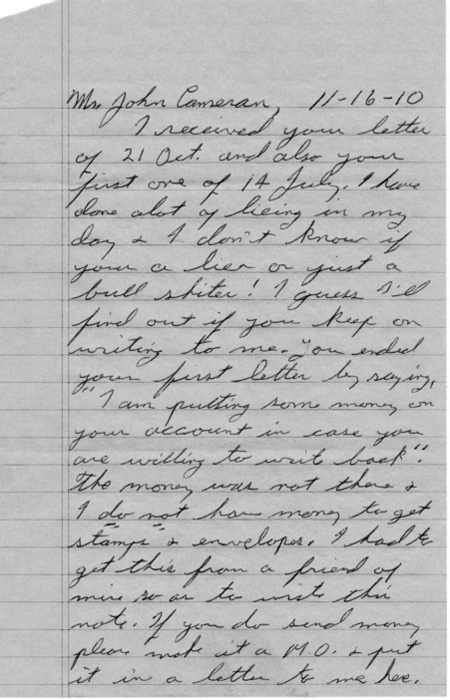 Mr. John Cameran, 11-16-10
I received your letter
of 21 Oct. and also your
first one of 14 July. I have
done alot of lieing in my
day & I don't know if
your a lier or just a
bull shiter! I guess I'll
find out if you keep on
writing to me. You ended
your first letter by saying,
"I am putting some money on
your account in case you
are willing to writ back".
The money was not there &
I do not have money to get
stamps & envelopes. I had to
get this from a friend of
mine so as to write this
note. If you do send money
please make it a M.O. & put
it in a letter to me here.